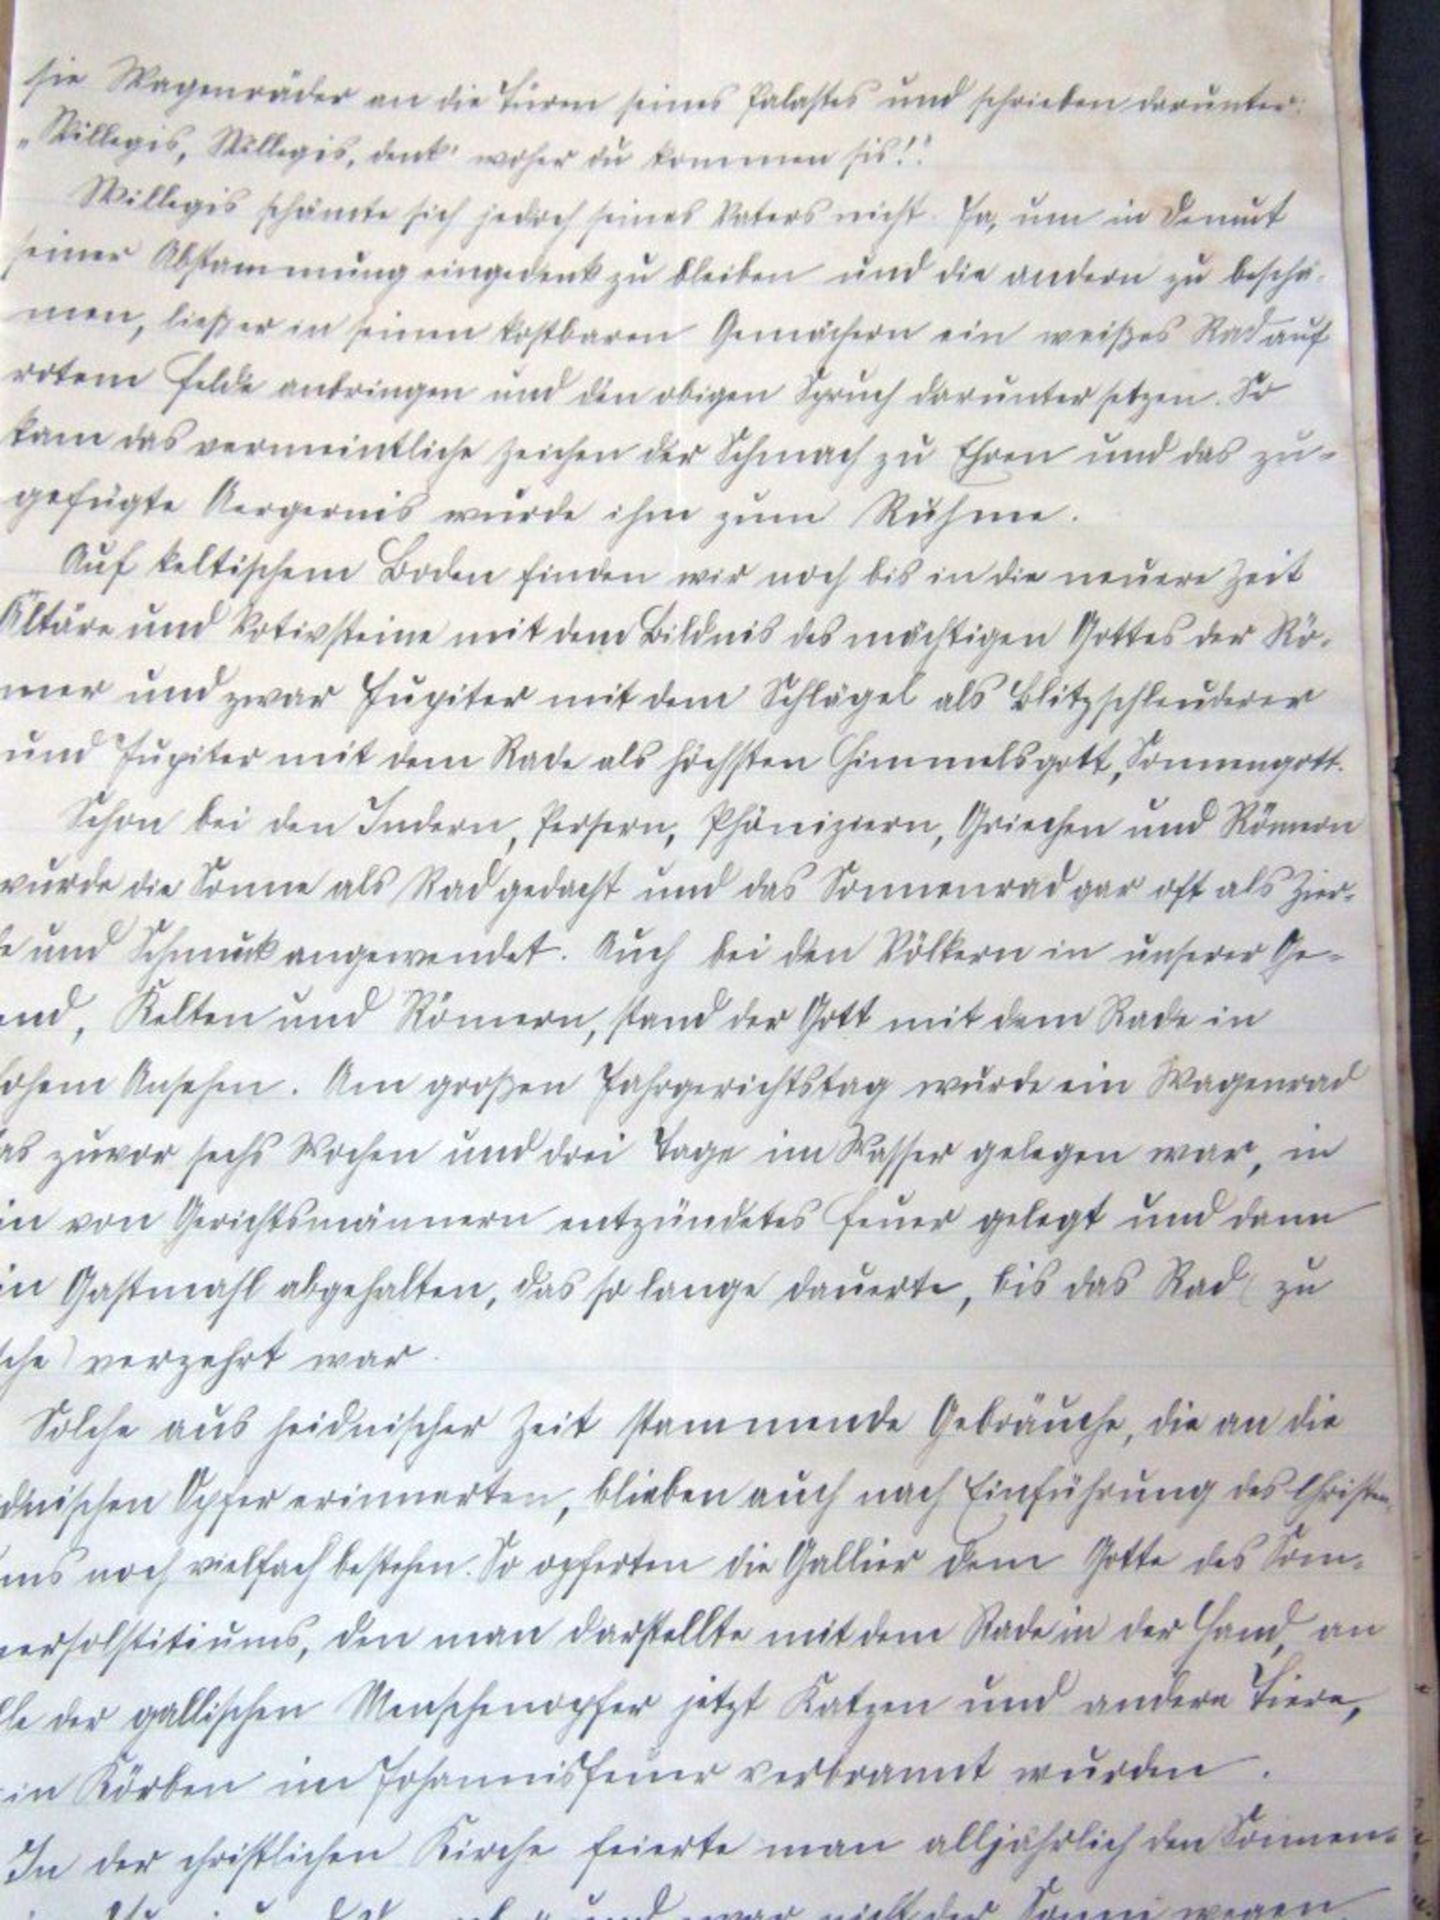 sie Wagenräder an die Türen seines Palastes und schrieben darunter:
„Willegis, Willegis, denk' woher du kommen sis!"
Willegis schämte sich jedoch seines Vaters nicht. Ja, um in Demut
seiner Abstammung eingedenk zu bleiben und die andern zu beschä-
men, ließ er in seinen kostbaren Gemächern ein weißes Rad auf
rotem Felde anbringen und den obigen Spruch darunter setzen. So
kam das vermeintliche Zeichen der Schmach zu Ehren und das zu-
gefügte Aergernis wurde ihm zum Ruhme.
Auf keltischem Boden finden wir noch bis in die neuere Zeit
Altäre und Votivsteine mit dem Bildnis des mächtigen Gottes der Rö-
mer und zwar Jupiter mit dem Schlägel als Blitzschleuderer
und Jupiter mit dem Rade als höchsten Himmelsgott, Sonnengott.
Schon bei den Indern, Persern, Phöniziern, Griechen und Römern
wurde die Sonne als Rad gedacht und das Sonnenrad gar oft als Zier-
de und Schmuck angewendet. Auch bei den Völkern in unserer Ge-
end, Kelten und Römern, stand der Gott mit dem Rade in
hohem Ansehen. Am großen Jahrgerichtstag wurde ein Wagenrad
das zuvor sechs Wochen und drei Tage im Wasser gelegen war, in
in von Gerichtsmännern entzündetes Feuer gelegt und dann
in Gastmahl abgehalten, das so lange dauerte, bis das Rad (zu
sche) verzehrt war.
Solche aus heidnischer Zeit stammende Gebräuche, die an die
dnischen Opfer erinnerten, blieben auch nach Einführung des Christen-
ms noch vielfach bestehen. So opferten die Gallier dem Gotte des Som-
mersolstitiums, den man darstellte mit dem Rade in der Hand, an
lle der gallischen Menschenopfer jetzt Katzen und andere Tiere,
in Körben im Johannisfeuer verbrannt wurden.
In der christlichen Kirche feierte man alljährlich den Sonnen-
und zwar nicht der Sonne wegen